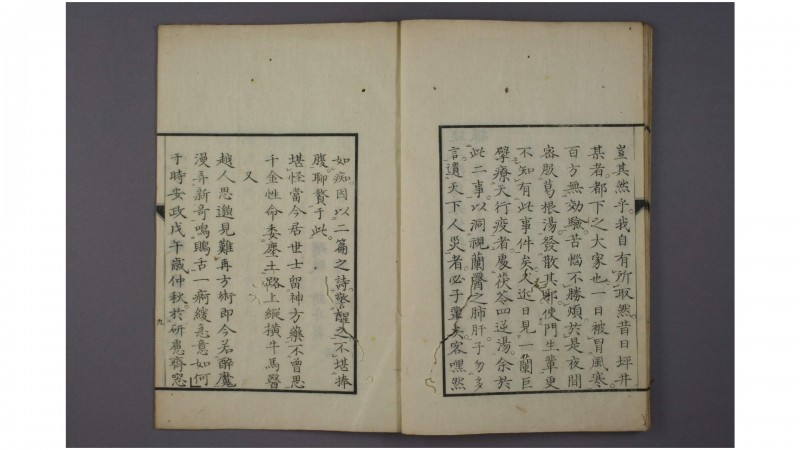 豈其然乎我自有所取然昔日坪井
某者都下之大家也一日被冒風寒
百方無効驗苦惱不勝煩於是夜間
密服葛根湯發散其邪使門生輩更
不知有此事件矣又近日見一蘭巨
擘療天行疫者處茯苓四逆湯余於
此二事以洞視蘭醫之肺肝子勿多
言遺天下人災者必子輩矣客嘿然
如痴因以二篇之詩警醒之不堪捧
腹聊贅于此
堪怪當今居世士留神方藥不曾思
千金性命委塵土路上縱橫牛馬醫
又
越人思邈見難再方術即今若醉魔
漫弄新奇鳴鴃舌一痾緩急意如何
于時安政戊午歲仲秋於研悳齊窓
九